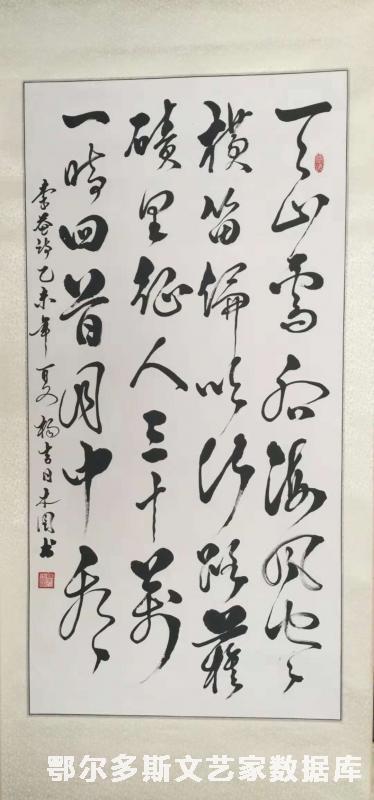 天山雪后海风寒
横笛偏吹行路難
磧里征人三十萬
一時回首月中看
李益诗乙未年夏杨吉日木图书
鄂尔多斯文艺家数据库